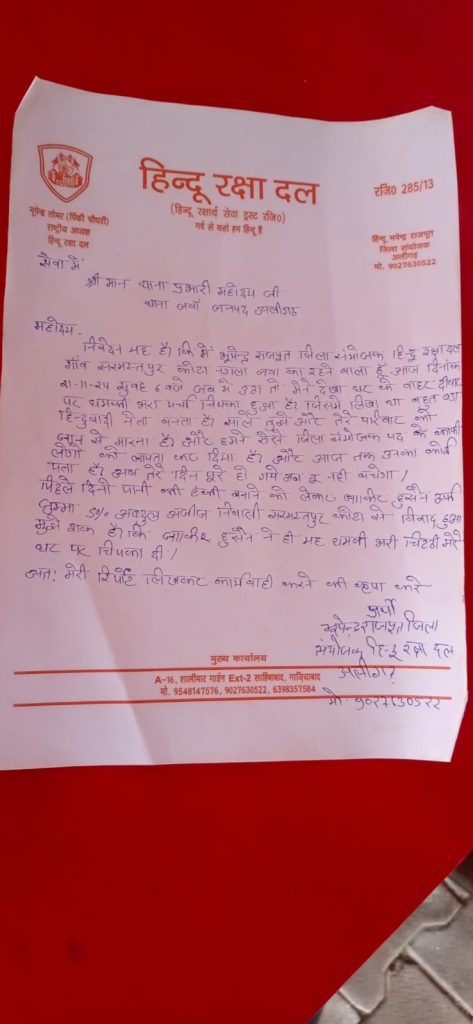 हिन्दू रक्षा दल
(हिन्दू रक्षार्थ सेवा ट्रस्ट रजि०)
गर्व से कहो हम हिन्दू हैं
रजि० 285/13
भूपेन्द्र तोमर (पिंकी चौधरी)
राष्ट्रीय अध्यक्ष
हिन्दू रक्षा दल
हिन्दू भूपेन्द्र राजपूत
जिला संयोजक
अलीगढ़
मो. 9027630522
सेवा में
श्री मान थाना प्रभारी महोदय जी
थाना जवां जनपद अलीगढ़
महोदय,
निवेदन यह है। कि में भूपेन्द्र राजपूत जिला संयोजक हिन्दू रक्षा दल
गाँव सरमस्तपुर कोटा नगला जवा का रहने वाला हूँ आज दिनांक
21-11-24 सुबह 6 बजे जब मे उठा तो मेने देखा घर के बाहर दीवार
पर धमकी भरा पर्चा चिपका हुआ है। जिसमे लिखा था बहुत बड़ा
हिन्दुवादी नेता बनता है। साले तुझे और तेरे परिवार को
जान से मारना है। और हमने ऐसे जिला संयोजक पद के काफी
लोगो को लापता कर दिया है। और आज तक उनका कोई
पता है। अब तेरे दिन पूरे हो गये अब तू नही बचेगा।
पिछले दिनो पानी की टंकी बनाने को लेकर जाकिर हुसैन उर्फ
छुम्मा S/o अबदुल अजीज निवासी सरमस्तपुर कोटा से विवाद हुआ
मुझे शक है। कि जाकिर हुसैन ने ही यह धमकी भरी चिटठी मेरे
घर पर चिपका दी।
अतः मेरी रिपोर्ट लिखकर कार्यवाही करने की कृपा करे
प्रार्थी
भूपेन्द्र राजपूत जिला
संयोजक हिन्दू रक्षा दल
अलीगढ़
मो- 9027630522
मुख्य कार्यालय
A-16, शालीमार गार्डन Ext-2 साहिबाबाद, गाज़ियाबाद
मो. 9548147576, 9027630522, 6398357584